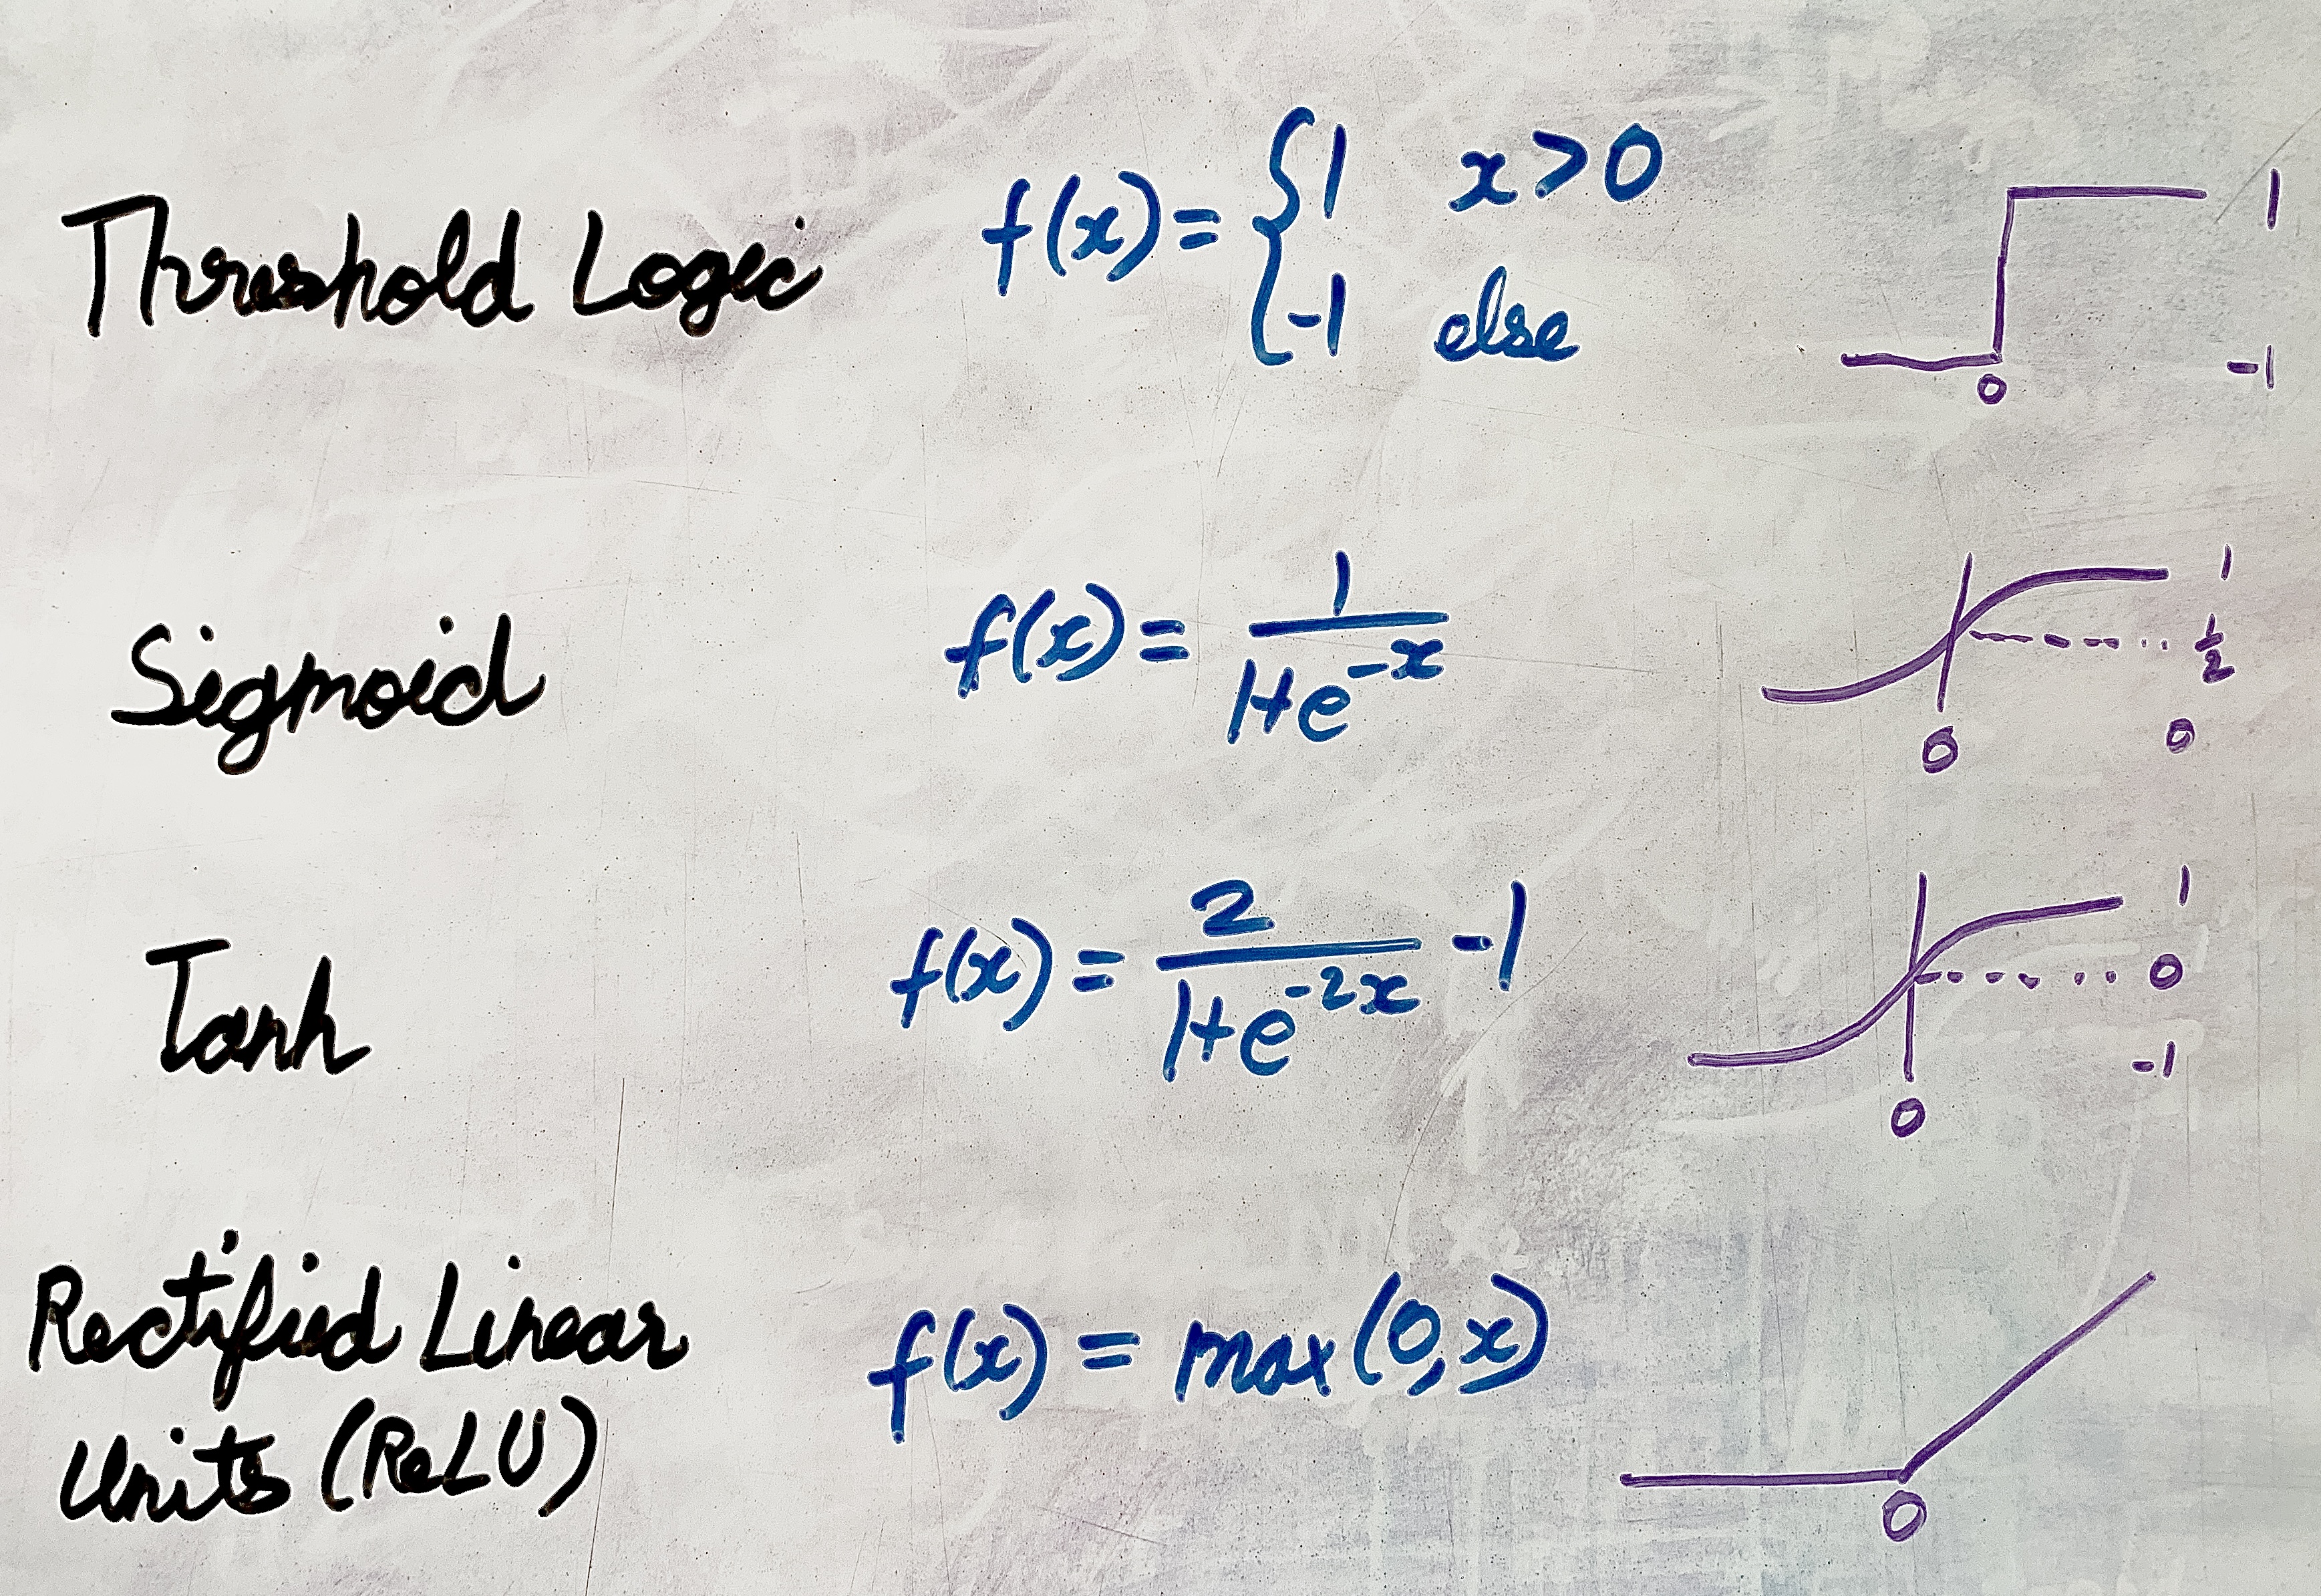 Threshold Logic f(x) = { 1 x>0 1
-1 else -1
0
Sigmoid f(x) = 1/(1+e^-x) 1
1/2
0 0
Tanh f(x) = 2/(1+e^-2x) -1 1
0
-1
0
Rectified Linear f(x) = max(0,x)
Units (ReLU) 0